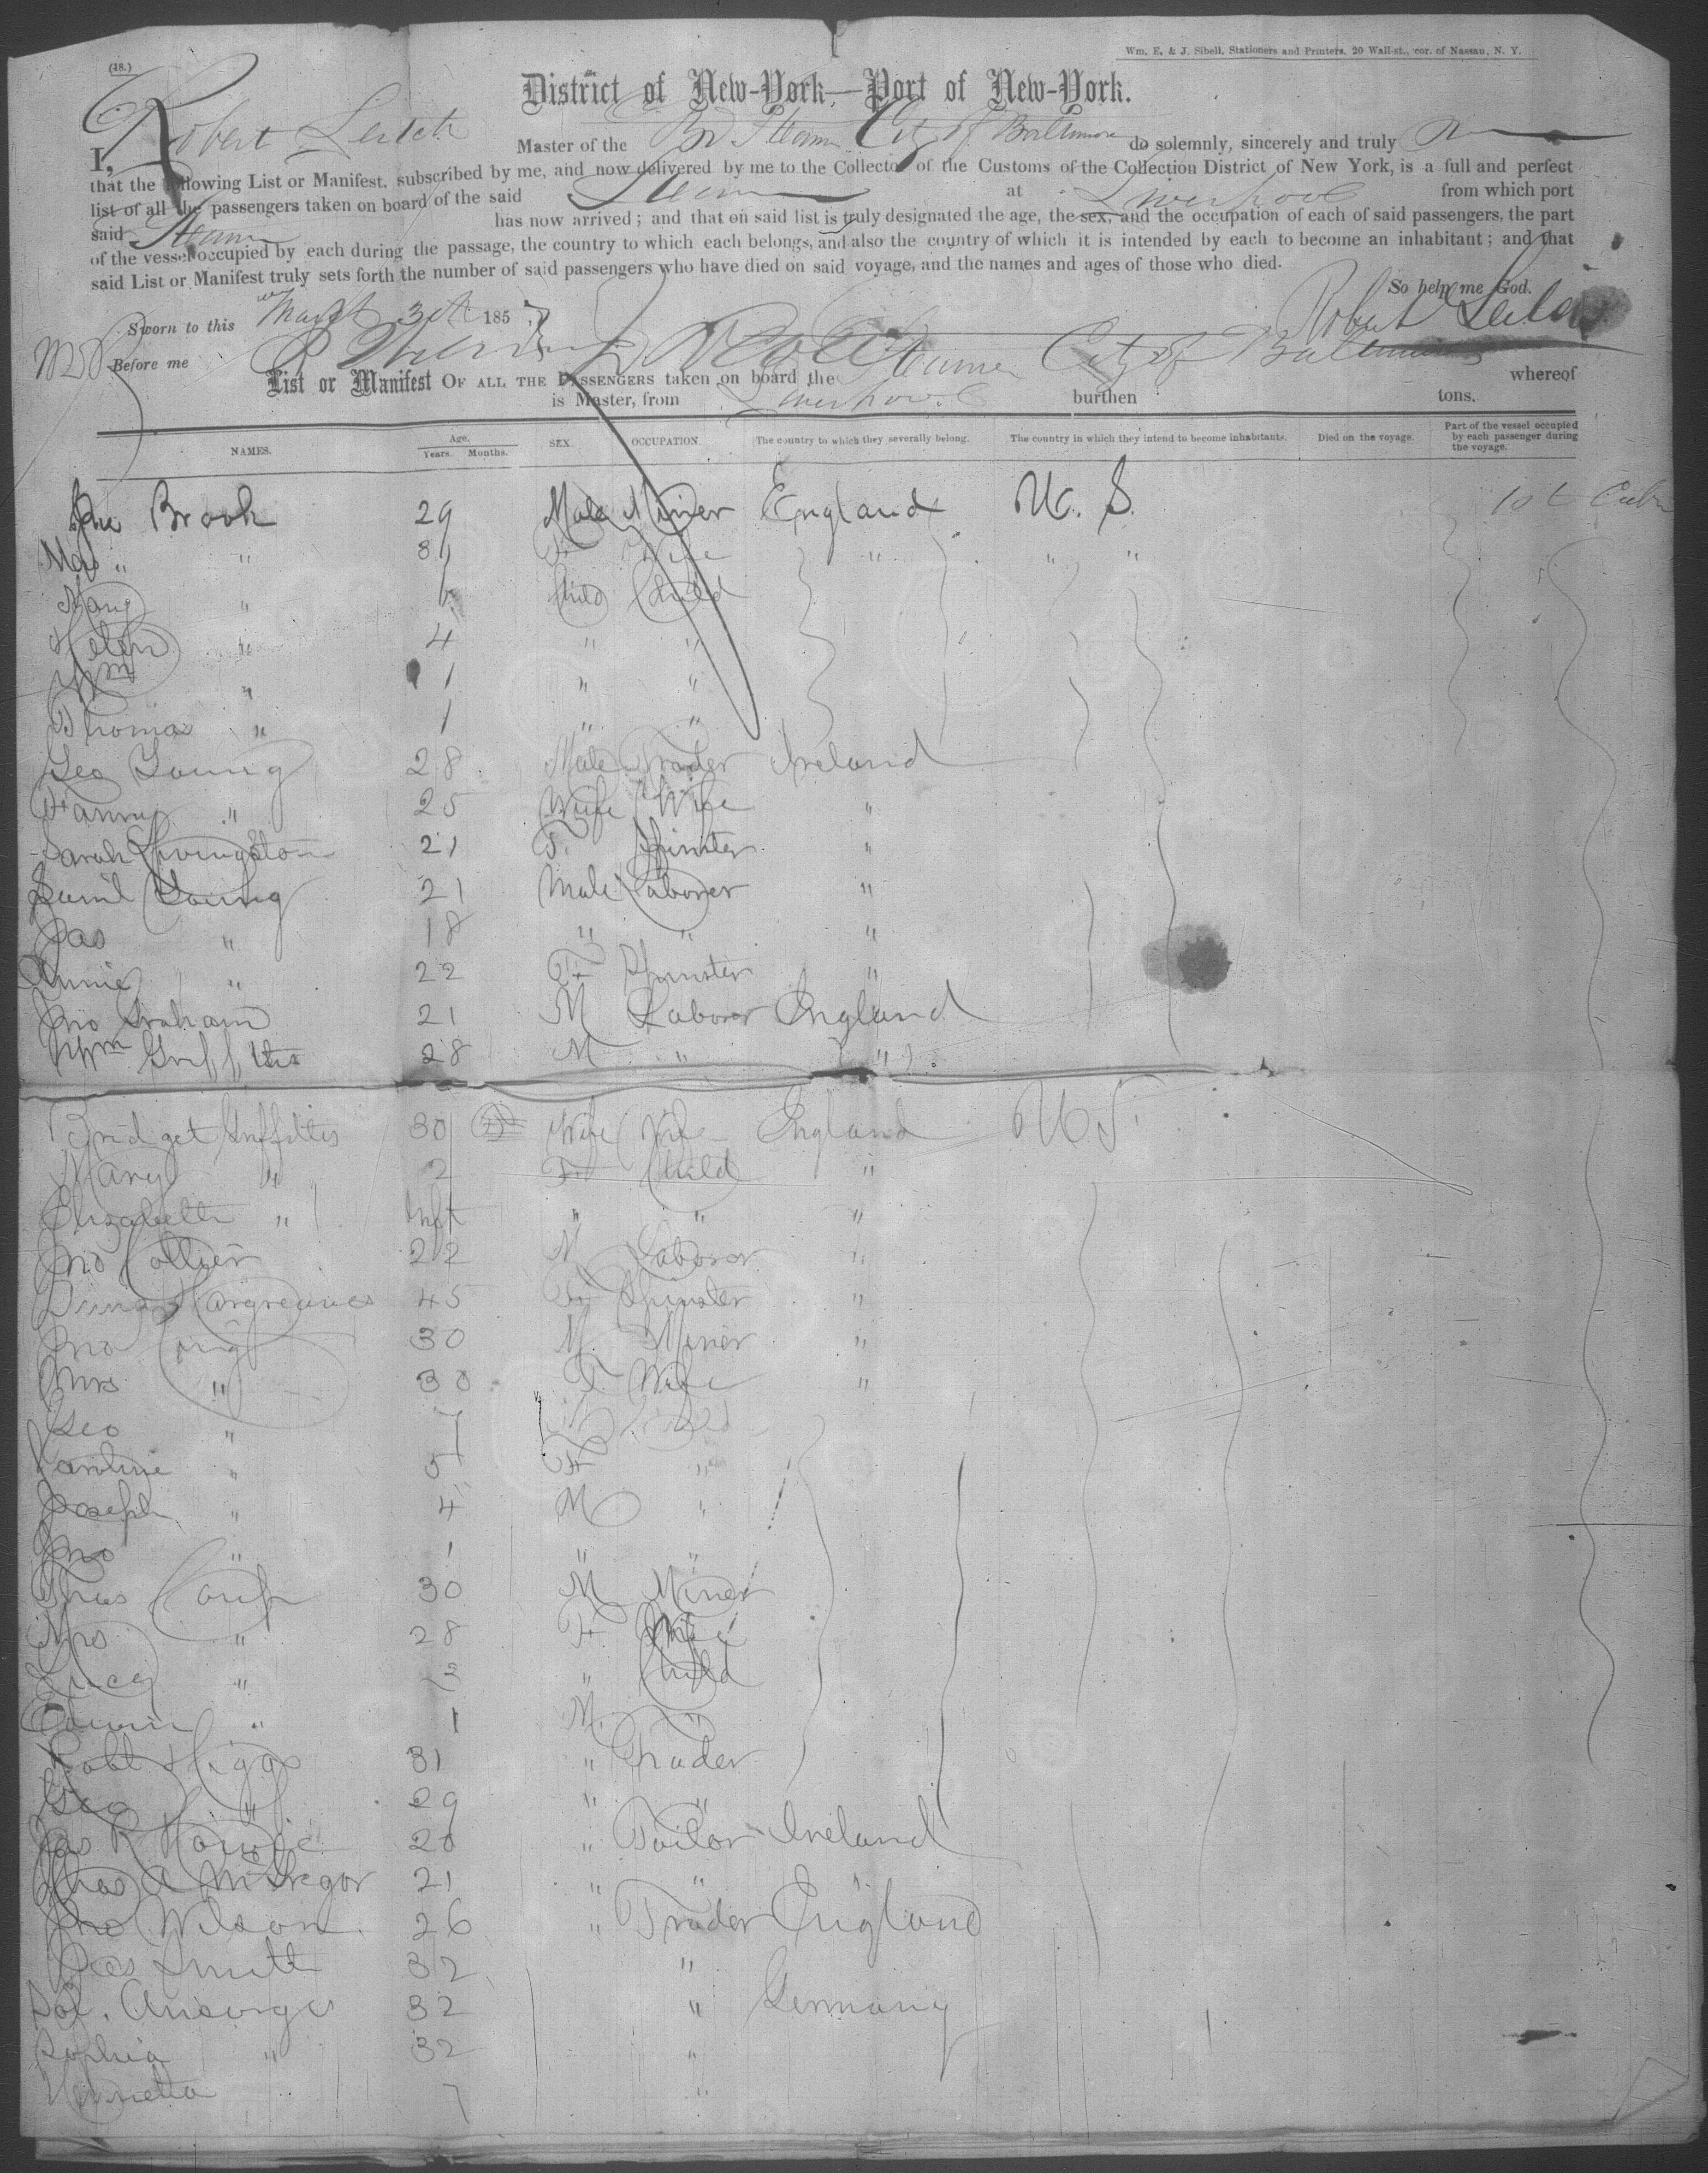 Wm. E. & J. Sibell, Stationers and Printers, 20 Wall-st., cor. of Nassau, N. Y.
(18.)
District of New-York—Port of New-York.
I, Robert Leitch Master of the Br Steam City of Baltimore do solemnly, sincerely and truly
that the following List or Manifest, subscribed by me, and now delivered by me to the Collector of the Customs of the Collection District of New York, is a full and perfect
list of all the passengers taken on board of the said Steam at Liverpool from which port
said Steam has now arrived; and that on said list is truly designated the age, the sex, and the occupation of each of said passengers, the part
of the vessel occupied by each during the passage, the country to which each belongs, and also the country of which it is intended by each to become an inhabitant; and that
said List or Manifest truly sets forth the number of said passengers who have died on said voyage, and the names and ages of those who died.
So help me God.
Sworn to this March 30th 1857 Robert Leitch
Before me
List or Manifest OF ALL THE PASSENGERS taken on board the Steamer City of Baltimore whereof
is Master, from Liverpool burthen tons.
NAMES. Age. Years. Months. SEX. OCCUPATION. The country to which they severally belong. The country in which they intend to become inhabitants. Died on the voyage. Part of the vessel occupied by each passenger during the voyage.
Brook 29 Male Miner England U. S. 1st Cabn
Mrs " " 31 F Wife " " "
Mary " 6 Child Child
Helen " 4 " "
Wm " 1 " "
Thomas " 1 " "
Geo Young 28 Male Trader Ireland
Fanny " 25 Wife Wife "
Sarah Livingston 21 F. Spinster "
Saml Young 21 Male Laborer "
Jas " 18 " " "
Annie " 22 F Spinster "
Jno Graham 21 M Laborer England
Wm Griffiths 28 M " "
Bridget Griffiths 30 Wife Wife England U S.
Mary " 2 F Child "
Elizabeth " Inft " " "
Jno Collier 22 M Laborer "
Hargreaves 45 F Spinster "
Jno 30 M. Miner "
Mrs " 30 F. Wife "
Geo " 7 Child
Caroline " 5 F "
Joseph " 4 M "
Jno " 1 " "
Thos 30 M Miner
Mrs " 28 F Wife
Lucy " 3 " Child
Edwin " 1 M. "
Robt Higgs 31 " Trader
Geo " 29 " "
Jas R 20 " Tailor Ireland
Chas A McGregor 21 " " "
Jno Wilson 26 " Trader England
Jas Smith 32 "
Sol. Ansorge 32 " Germany
Sophia " 32 "
Henrietta 7 "